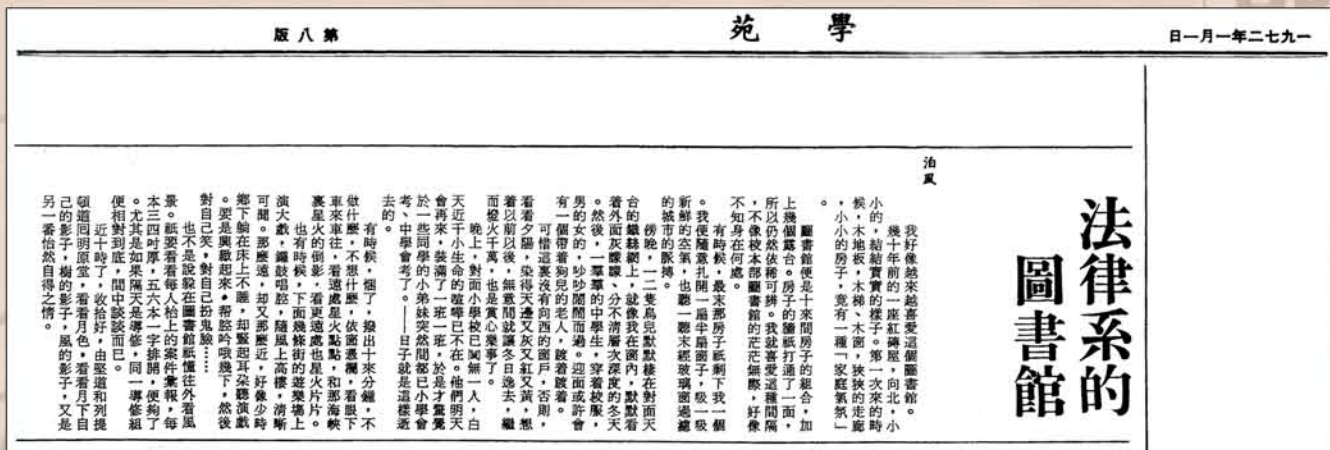 一九七二年一月一日
學苑
第八版
法律系的
圖書館
治風
我好像越來越喜愛這個圖書館。
幾十年前的一座紅磚屋，向北，小
小的，結結實實的樣子。第一次來的時
候，木地板，木梯、木窗，狹狹的走廊
，小小的房子，竟有一種「家庭氣氛」
。
圖書館便是十來間房子的組合，加
上幾個露台。房子的牆祇打通了一面，
所以仍然依稀可辨。我就喜愛這種間隔
，不像校本部圖書館的茫茫無際，好像
不知身在何處。
有時候，最末那房子祇剩下我一個
。我便隨意扎開一扇半扇窗子，吸一吸
新鮮的空氣，也聽一聽末經玻璃窗過濾
的城市的脈搏。
傍晚，一二隻鳥兒默默棲在對面天
台的鐵絲網上，就像我在窗內，默默看
着外面灰朦朦、分不清層次深度的冬天
。然後，一羣羣的中學生，穿着校服，
男的女的，吵吵鬧鬧而過。迎面或許會
有一個帶着狗兒的老人，踱着踱着。
可惜這裏沒有向西的窗戶，否則，
看看夕陽，染得天邊又灰又紅又黃，想
着以前以後，無意間就讓冬日逸去，繼
而燈火千萬，也是賞心樂事了。
晚上，對面小學校已闃無一人，白
天近千小生命的喧嘩已不在。他們明天
會再來，裝滿了一班一班，於是才驚覺
於一些同學的小弟妹突然間都已小學會
考、中學會考了。——日子就是這樣逝
去的。
有時候，悃了，撥出十來分鐘，不
做什麼，不想什麼，依窗憑欄，看眼下
車來車往，看遠處星火點點，和那海峽
裏星火的倒影，看更遠處也星火片片。
也有時候，下面幾條街的遊樂塲上
演大戲，鑼鼓唱腔，隨風上高樓，清晰
可聞。那麼遠，却又那麼近，好像少時
鄉下躺在床上不睡，却豎起耳朵聽演戲
。要是興緻起來，幫腔吟哦幾下，然後
對自己笑，對自己扮鬼臉……
也不是說躱在圖書館祇懂往外看風
景。祇要看看每人枱上的案件彙報，每
本三四吋厚，五六本一字排開，便夠了
。尤其是如果隔天是導修，同一導修組
便相對到底，間中談談而已。
近十時了，收拾好，由堅道和列提
頓道囘明原堂，看看月色，看看月下自
己的影子，樹的影子，風的影子，又是
另一番怡然自得之情。